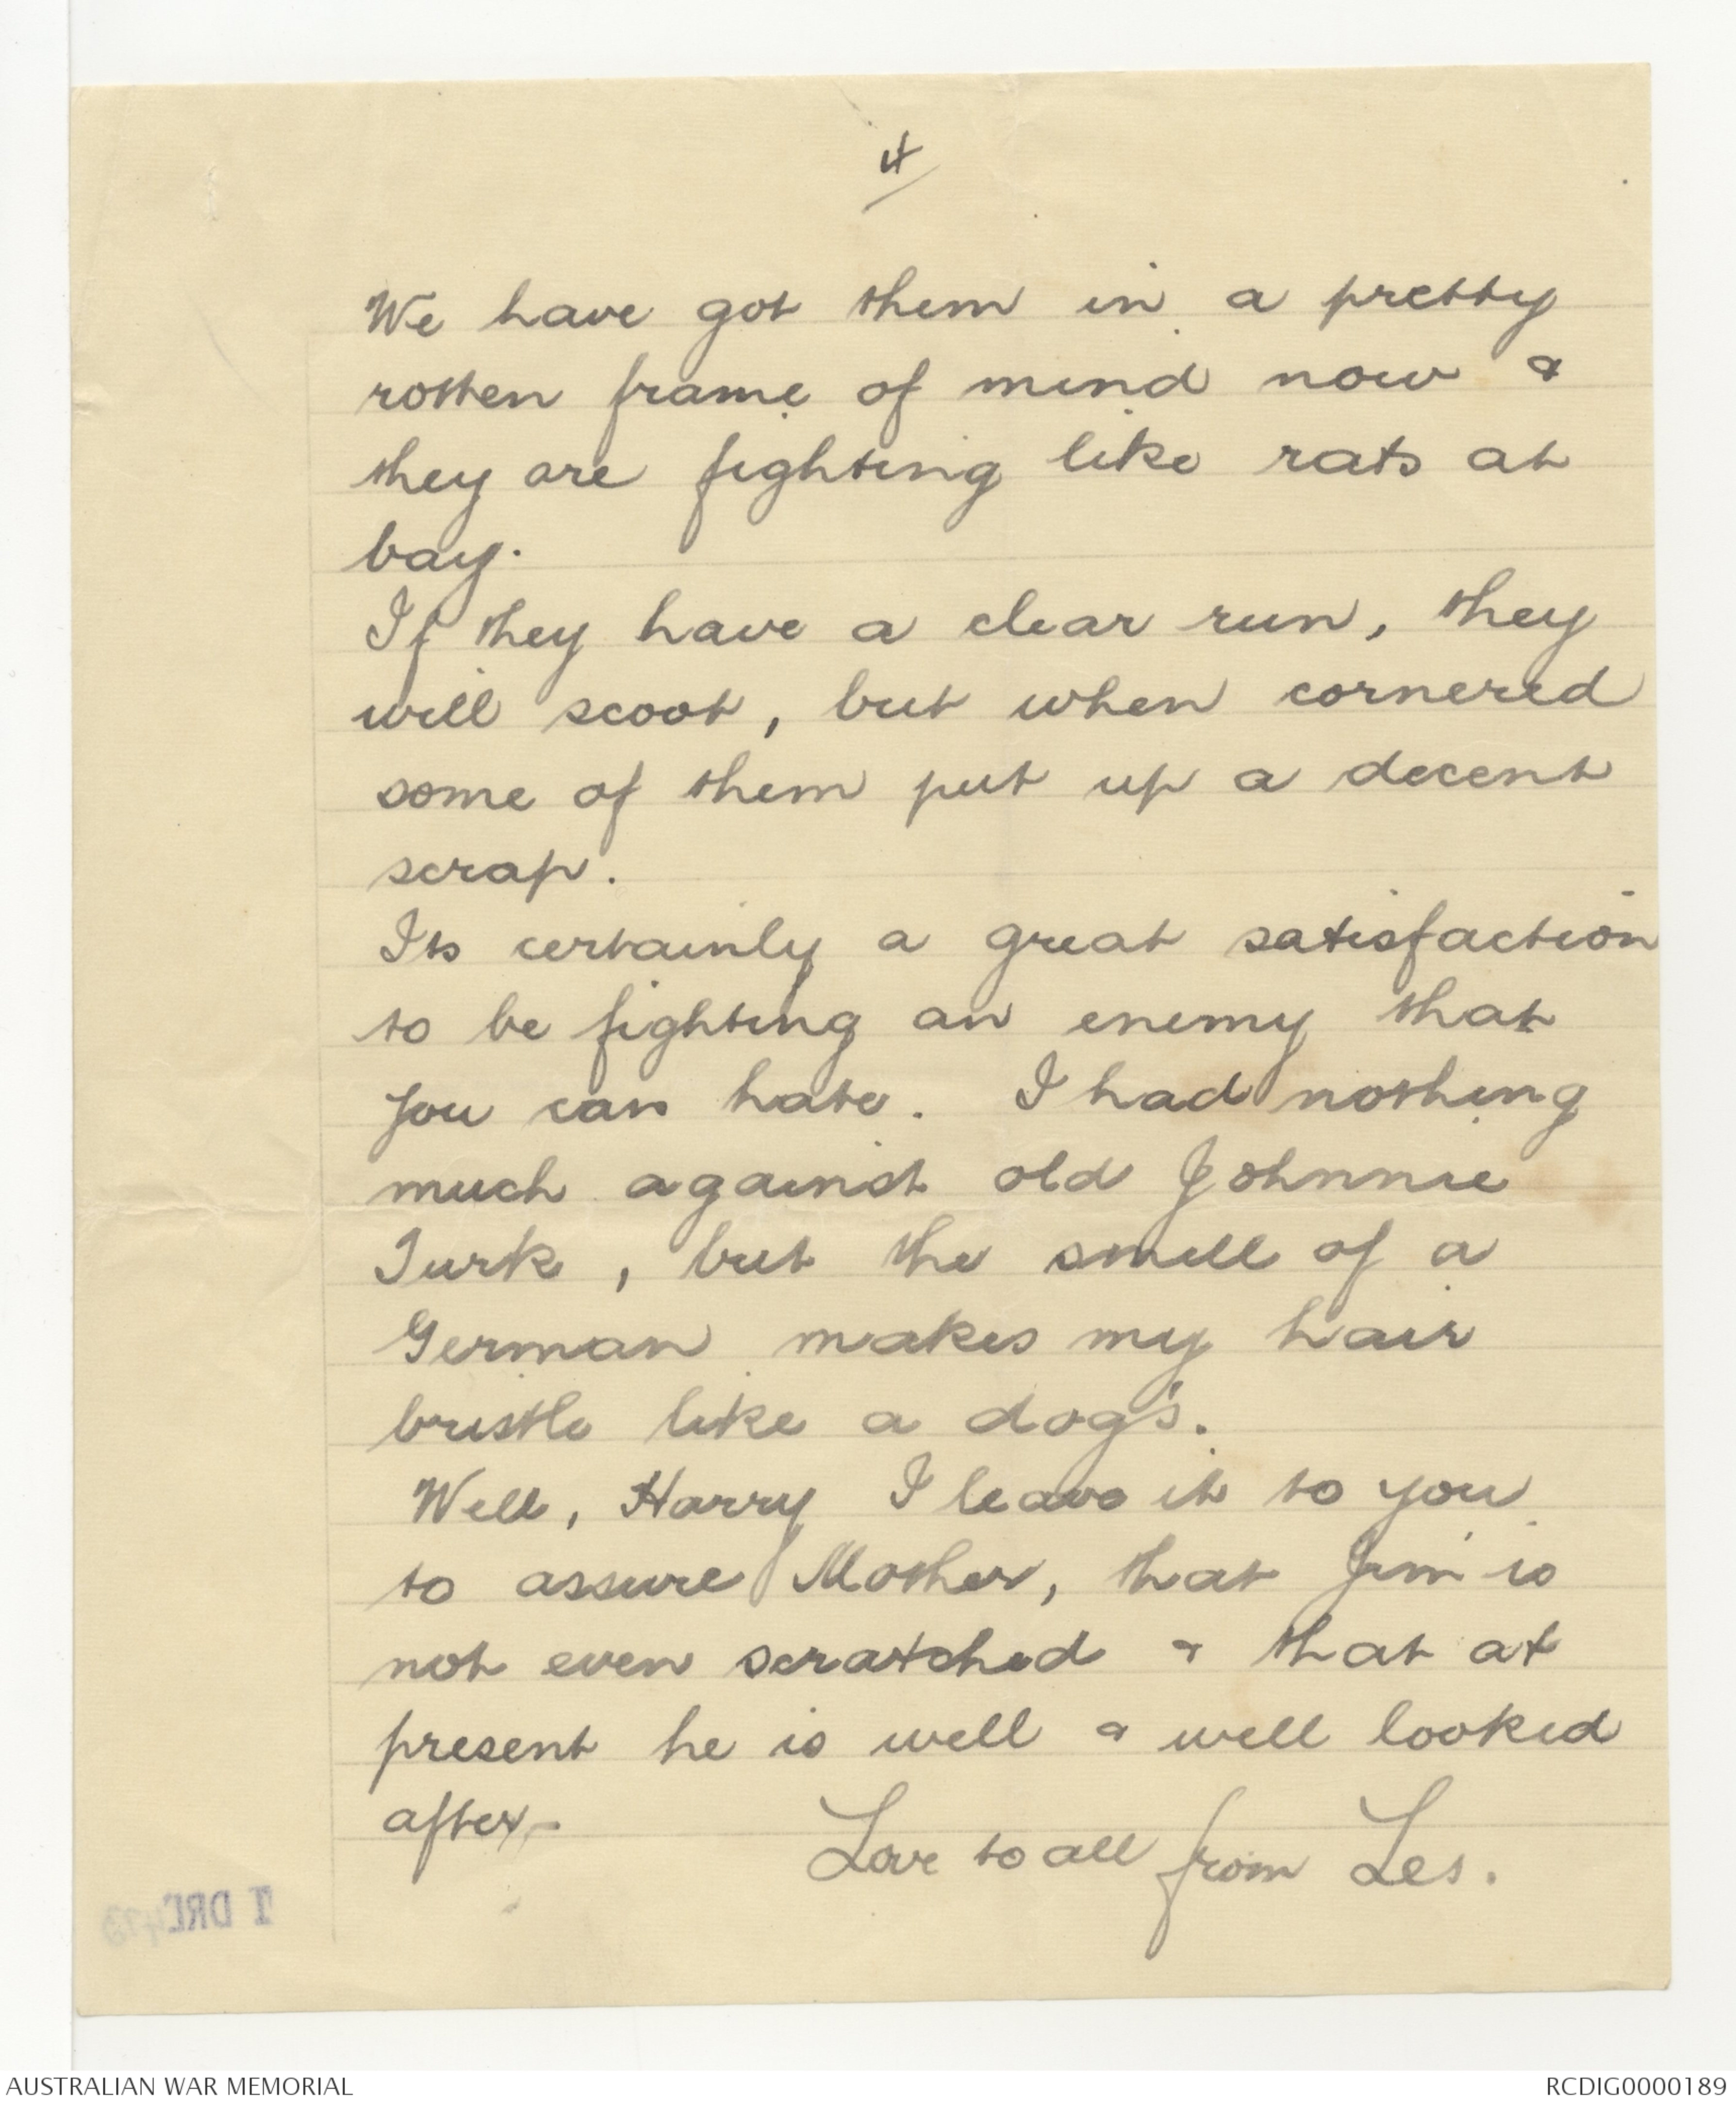 4
We have got them in a pretty
rotten frame of mind now &
they are fighting like rats at
bay.
If they have a clear run, they
will scoot, but when cornered
some of them put up a decent
scrap.
Its certainly a great satisfaction
to be fighting an enemy that
you can hate. I had nothing
much against old Johnnie
Turk, but the smell of a
German makes my hair
bristle like a dog's.
Well, Harry I leave it to you
to assure Mother, that Jim is
not even scratched & that at
present he is well & well looked
after.-
Love to all from Les.
1 DRL
AUSTRALIAN WAR MEMORIAL
RCDIG0000189